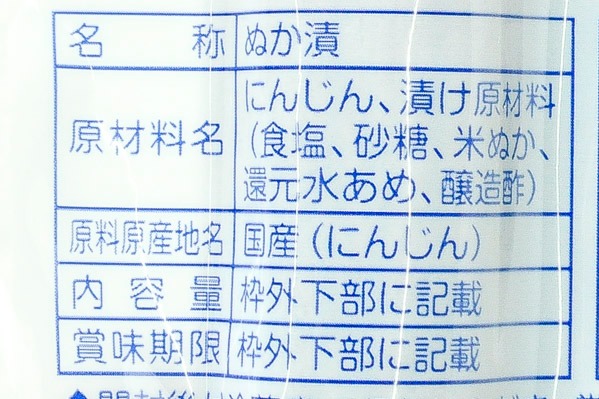 名称 ぬか漬
原材料名 にんじん、漬け原材料
(食塩、砂糖、米ぬか、
還元水あめ、醸造酢)
原料原産地名 国産(にんじん)
内容量 枠外下部に記載
賞味期限 枠外下部に記載